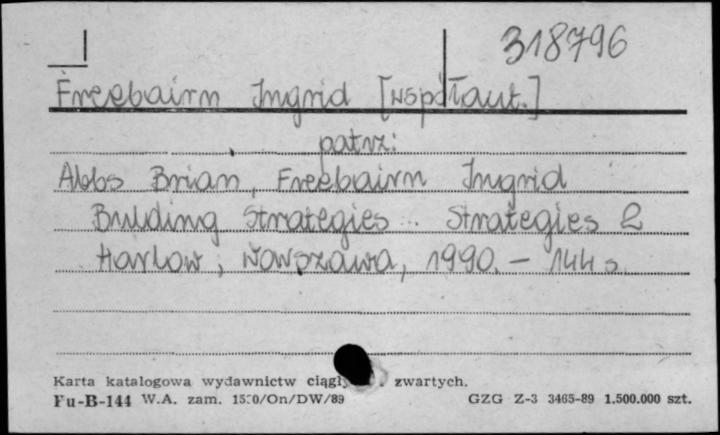 318796
Freebairn Ingrid [współaut.]
patrz:
Abbs Brian, Freebairn Ingrid
Building Strategies.. Strategies 2
Harlow, Warszawa, 1990. - 144 s.
Karta katalogowa wydawnictw zwartych.
Fu-B-144 W.A. zam. /On/DW/89 GZG Z-3 3465-89 1.500.000 szt.